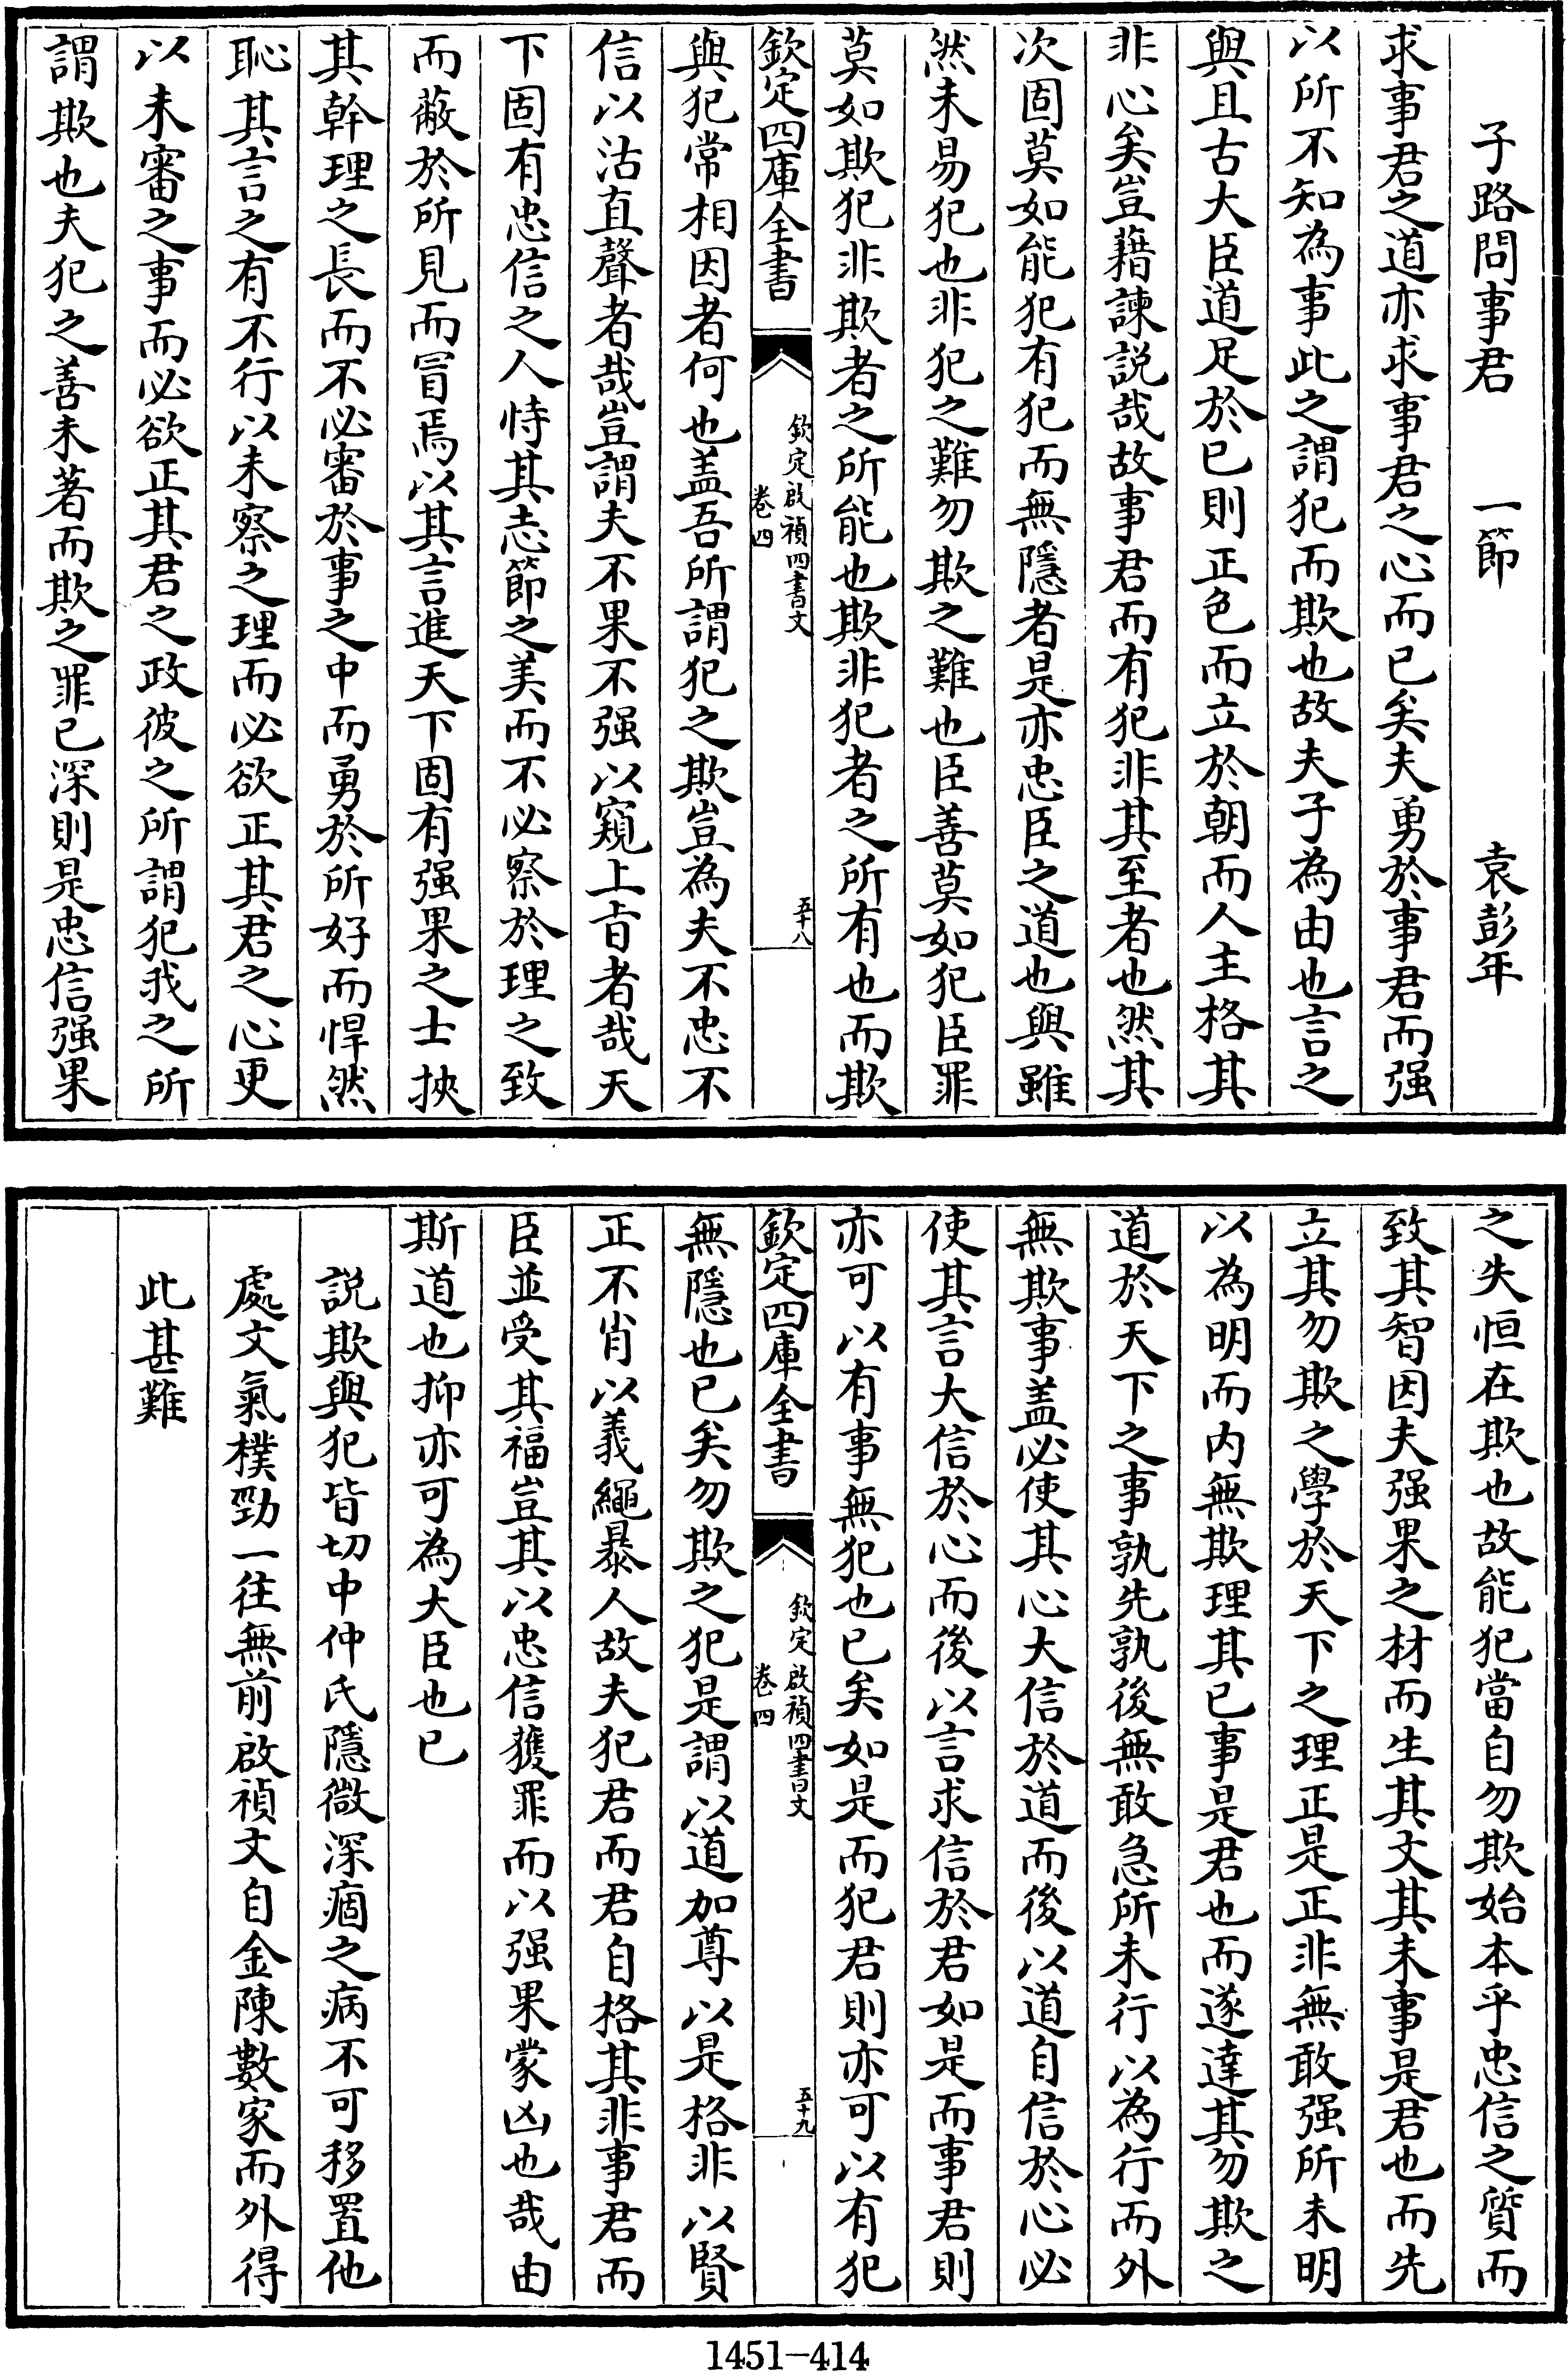 子路問事君　一節　袁彭年
求事君之道亦求事君之心而已矣夫勇於事君而强
以所不知為事此之謂犯而欺也故夫子為由也言之
與且古大臣道足於已則正色而立於朝而人主格其
非心矣豈藉諫説哉故事君而有犯非其至者也然其
次固莫如能犯有犯而無隱者是亦忠臣之道也與雖
然未易犯也非犯之難勿欺之難也臣善莫如犯臣罪
莫如欺犯非欺者之所能也欺非犯者之所有也而欺
欽定四庫全書
欽定啟禎四書文
卷四
五十八
與犯常相因者何也盖吾所謂犯之欺豈為夫不忠不
信以沽直聲者哉豈謂夫不果不强以窺上㫖者哉天
下固有忠信之人恃其志節之美而不必察於理之致
而蔽於所見而冒焉以其言進天下固有强果之士挾
其幹理之長而不必審於事之中而勇於所好而悍然
恥其言之有不行以未察之理而必欲正其君之心更
以未審之事而必欲正其君之政彼之所謂犯我之所
謂欺也夫犯之善未著而欺之罪已深則是忠信强果
之失恒在欺也故能犯當自勿欺始本乎忠信之質而
致其智因夫强果之材而生其文其未事是君也而先
立其勿欺之學於天下之理正是正非無敢强所未明
以為明而内無欺理其已事是君也而遂達其勿欺之
道於天下之事孰先孰後無敢急所未行以為行而外
無欺事盖必使其心大信於道而後以道自信於心必
使其言大信於心而後以言求信於君如是而事君則
亦可以有事無犯也已矣如是而犯君則亦可以有犯
欽定四庫全書
欽定啟禎四書文
卷四
五十九
無隱也已矣勿欺之犯是謂以道加尊以是格非以賢
正不肖以義繩暴人故夫犯君而君自格其非事君而
臣並受其福豈其以忠信獲罪而以强果蒙凶也哉由
斯道也抑亦可為大臣也已
説欺與犯皆切中仲氏隱微深痼之病不可移置他
處文氣樸勁一往無前啟禎文自金陳數家而外得
此甚難
1451-414